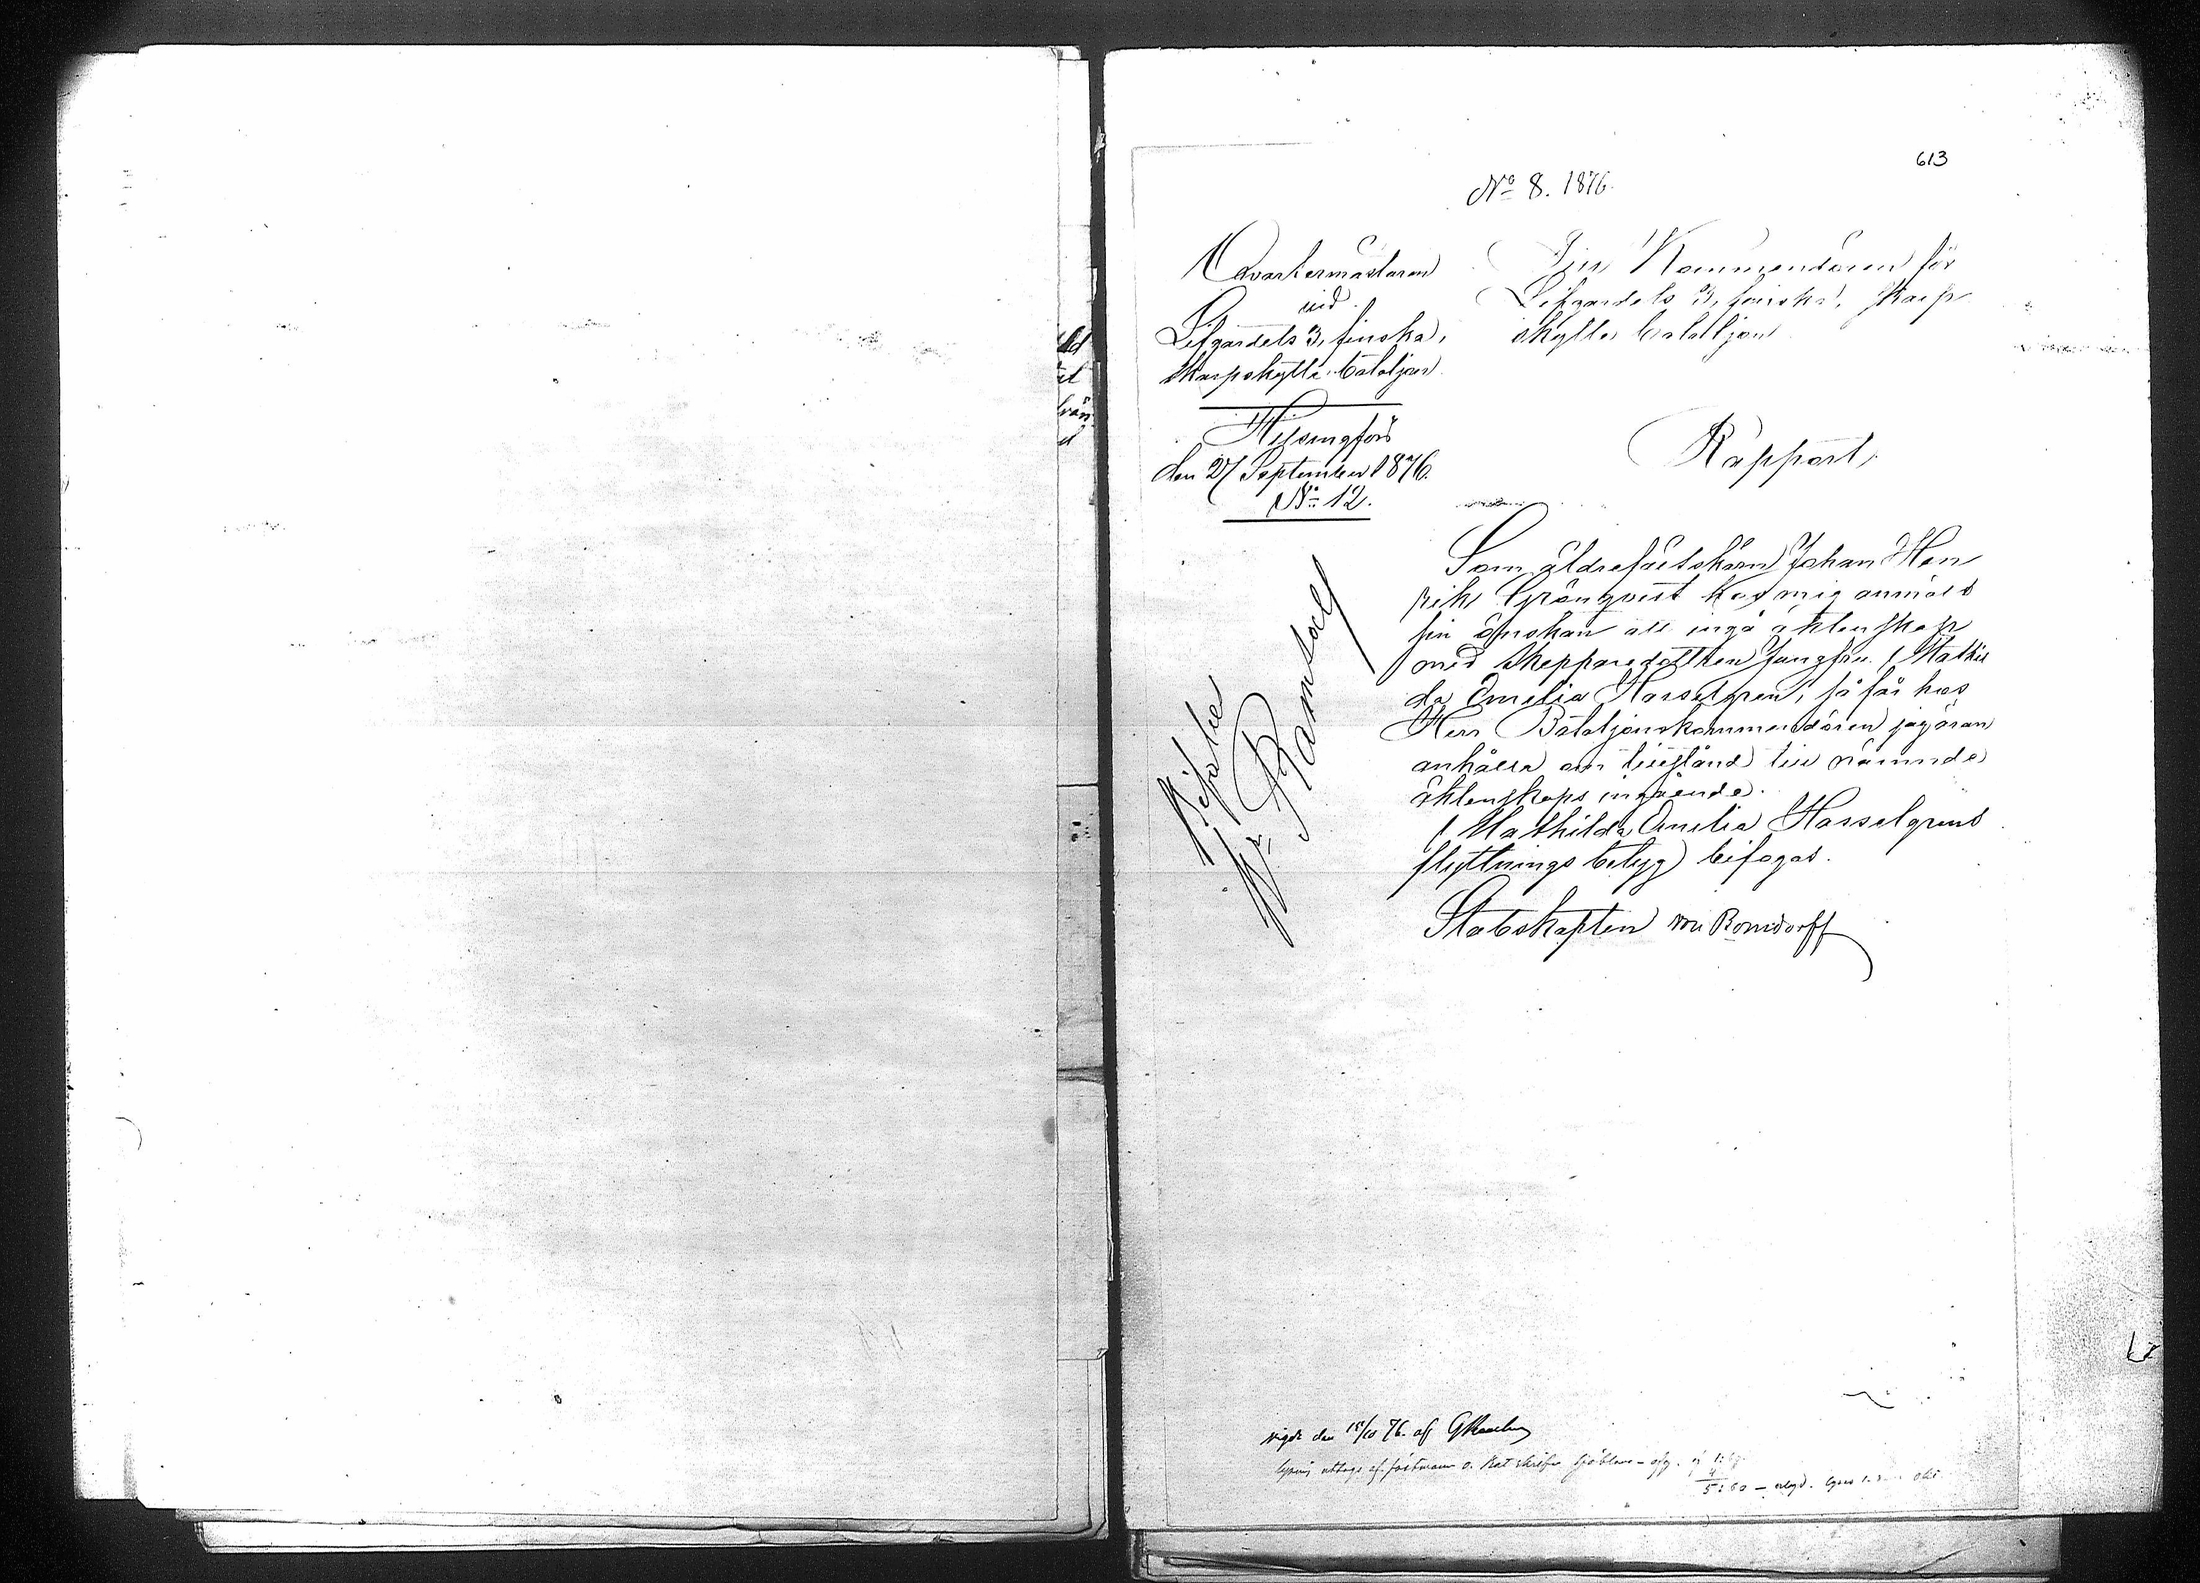 613
No 8. 1876.
Qvartermästaren
vid
Lifgardets 3, finska,
skarpskytte bataljon
Helsingfors
den 27 September 1876.
No 12.
Till Kommendören för
Lifgardets 3, finska, skarp
skytte bataljon
Rapport,
Som äldrefältskären Johan Hen
rik Grönqvist hos mig anmält
sin önskan att ingå äktenskap
med skepparedottren Jungfru Mathil
da Emelia Hasselgren, så får hos
Herr Bataljonskommendören jag äran
anhålla om tillstånd till nämnde
äktenskaps ingående.
Mathilda Emelia Hasselgrens
flyttningsbetyg bifogas.
Stabskapten von Bonsdorff
Bifalles
Ramsay
vigde den 15/10 76. af
lysning uttogs af
5:60 —
ld
et
från
d